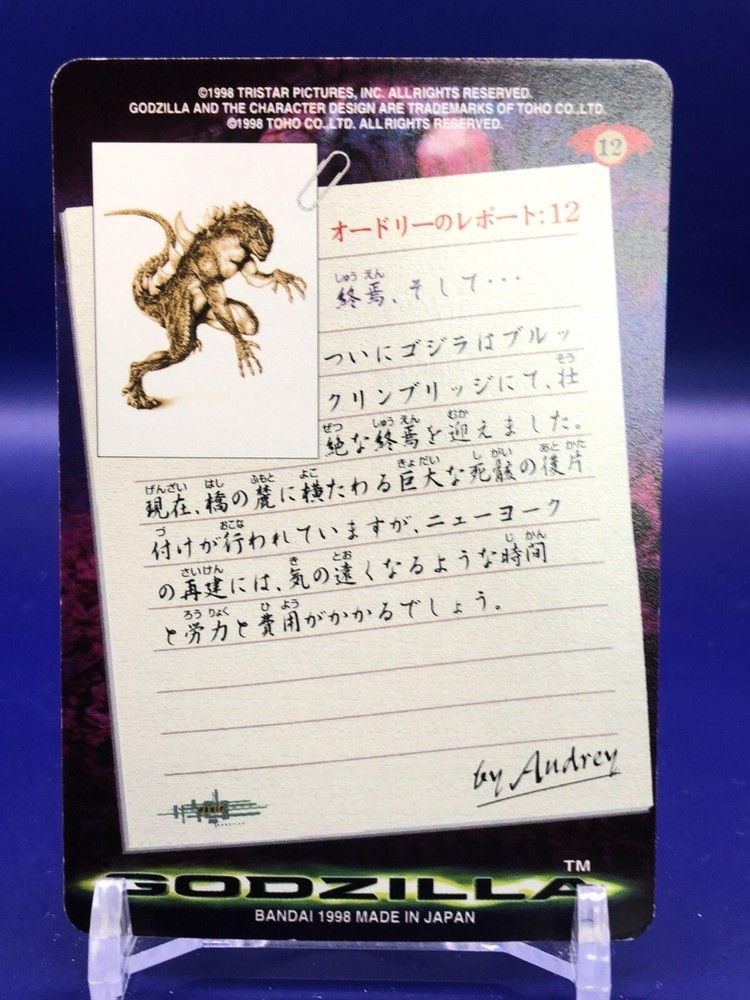 ©1998 TRISTAR PICTURES, INC. ALL RIGHTS RESERVED.
GODZILLA AND THE CHARACTER DESIGN ARE TRADEMARKS OF TOHO CO.,LTD.
©1998 TOHO CO.,LTD. ALL RIGHTS RESERVED.
12
オードリーのレポート:12
しゅう えん
終焉、そして・・・
ついにゴジラはブルッ
クリンブリッジにて、壮
そう
絶な終焉を迎えました。
ぜつ しゅう えん むか
現在、橋の麓に横たわる巨大な死骸の後片
げんざい はし ふもと よこ きょだい し がい あと かた
付けが行われていますが、ニューヨーク
づ おこな
の再建には、気の遠くなるような時間
さいけん き とお じ かん
と労力と費用がかかるでしょう。
ろう りょく ひ よう
by Audrey
GODZILLA
TM
BANDAI 1998 MADE IN JAPAN